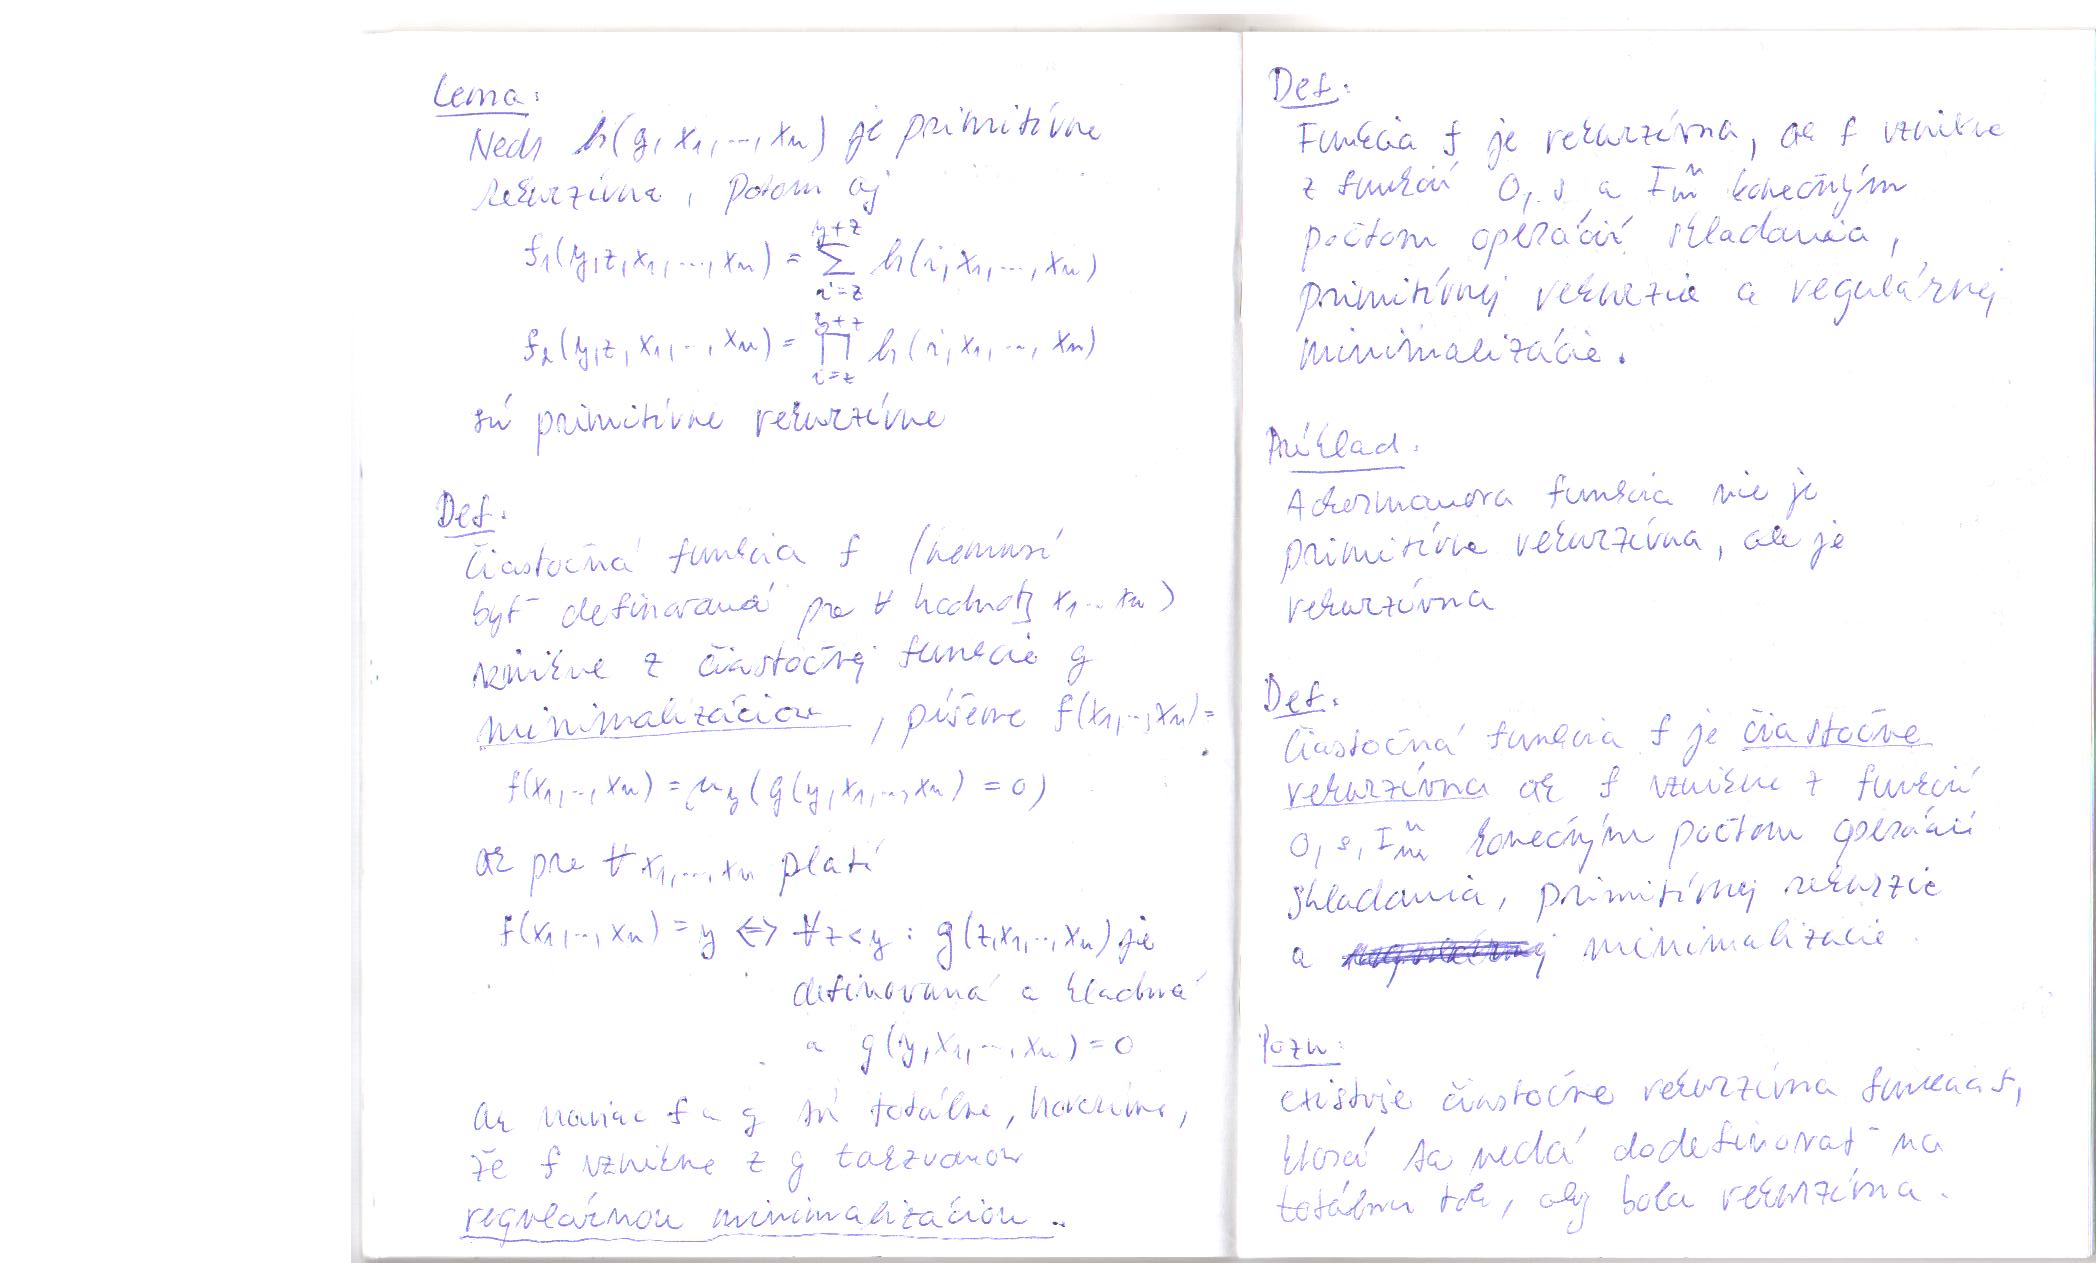 Lema:
Nech h(y, x₁, ..., xₙ) je primitívne
rekurzívna, potom aj
f₁(y,z,x₁,...,xₙ) = ∑_{i=z}^{y+z} h(i,x₁,...,xₙ)
f₂(y,z,x₁,..,xₙ) = ∏_{i=z}^{y+z} h(i,x₁,...,xₙ)
sú primitívne rekurzívne
Def.
Čiastočná funkcia f (nemusí
byť definovaná pre ∀ hodnoty x₁...xₙ)
vznikne z čiastočnej funkcie g
minimalizáciou, píšeme f(x₁,..,xₙ)=
f(x₁,..,xₙ) = μ_y(g(y,x₁,...,xₙ) = 0)
ak pre ∀x₁,...,xₙ platí
f(x₁,..,xₙ) = y ⇔ ∀z<y : g(z,x₁,..,xₙ) je
definovaná a kladná
a g(y,x₁,...,xₙ) = 0
ak naviac f a g sú totálne, hovoríme,
že f vznikne z g takzvanou
regulárnou minimalizáciou.
Def:
Funkcia f je rekurzívna, ak f vznikne
z funkcií 0, s a Iₘⁿ konečným
počtom operácií skladania,
primitívnej rekurzie a regulárnej
minimalizácie.
Príklad:
Ackermanova funkcia nie je
primitívne rekurzívna, ale je
rekurzívna
Def.
Čiastočná funkcia f je čiastočne
rekurzívna ak f vznikne z funkcií
0, s, Iₘⁿ konečným počtom operácií
skladania, primitívnej rekurzie
a minimalizácie.
Pozn:
existuje čiastočne rekurzívna funkcia f,
ktorá sa nedá dodefinovať na
totálnu tak, aby bola rekurzívna.